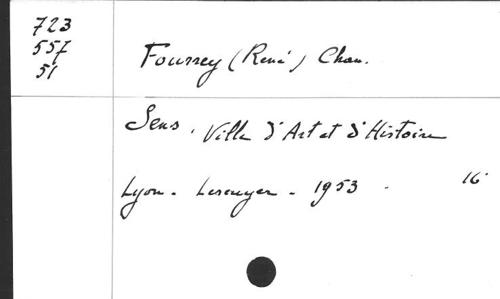 723
557
51
Fourrey (René) Chan.
Sens, Ville d'Art et d'Histoire
Lyon - Lescuyer - 1953 - 16°